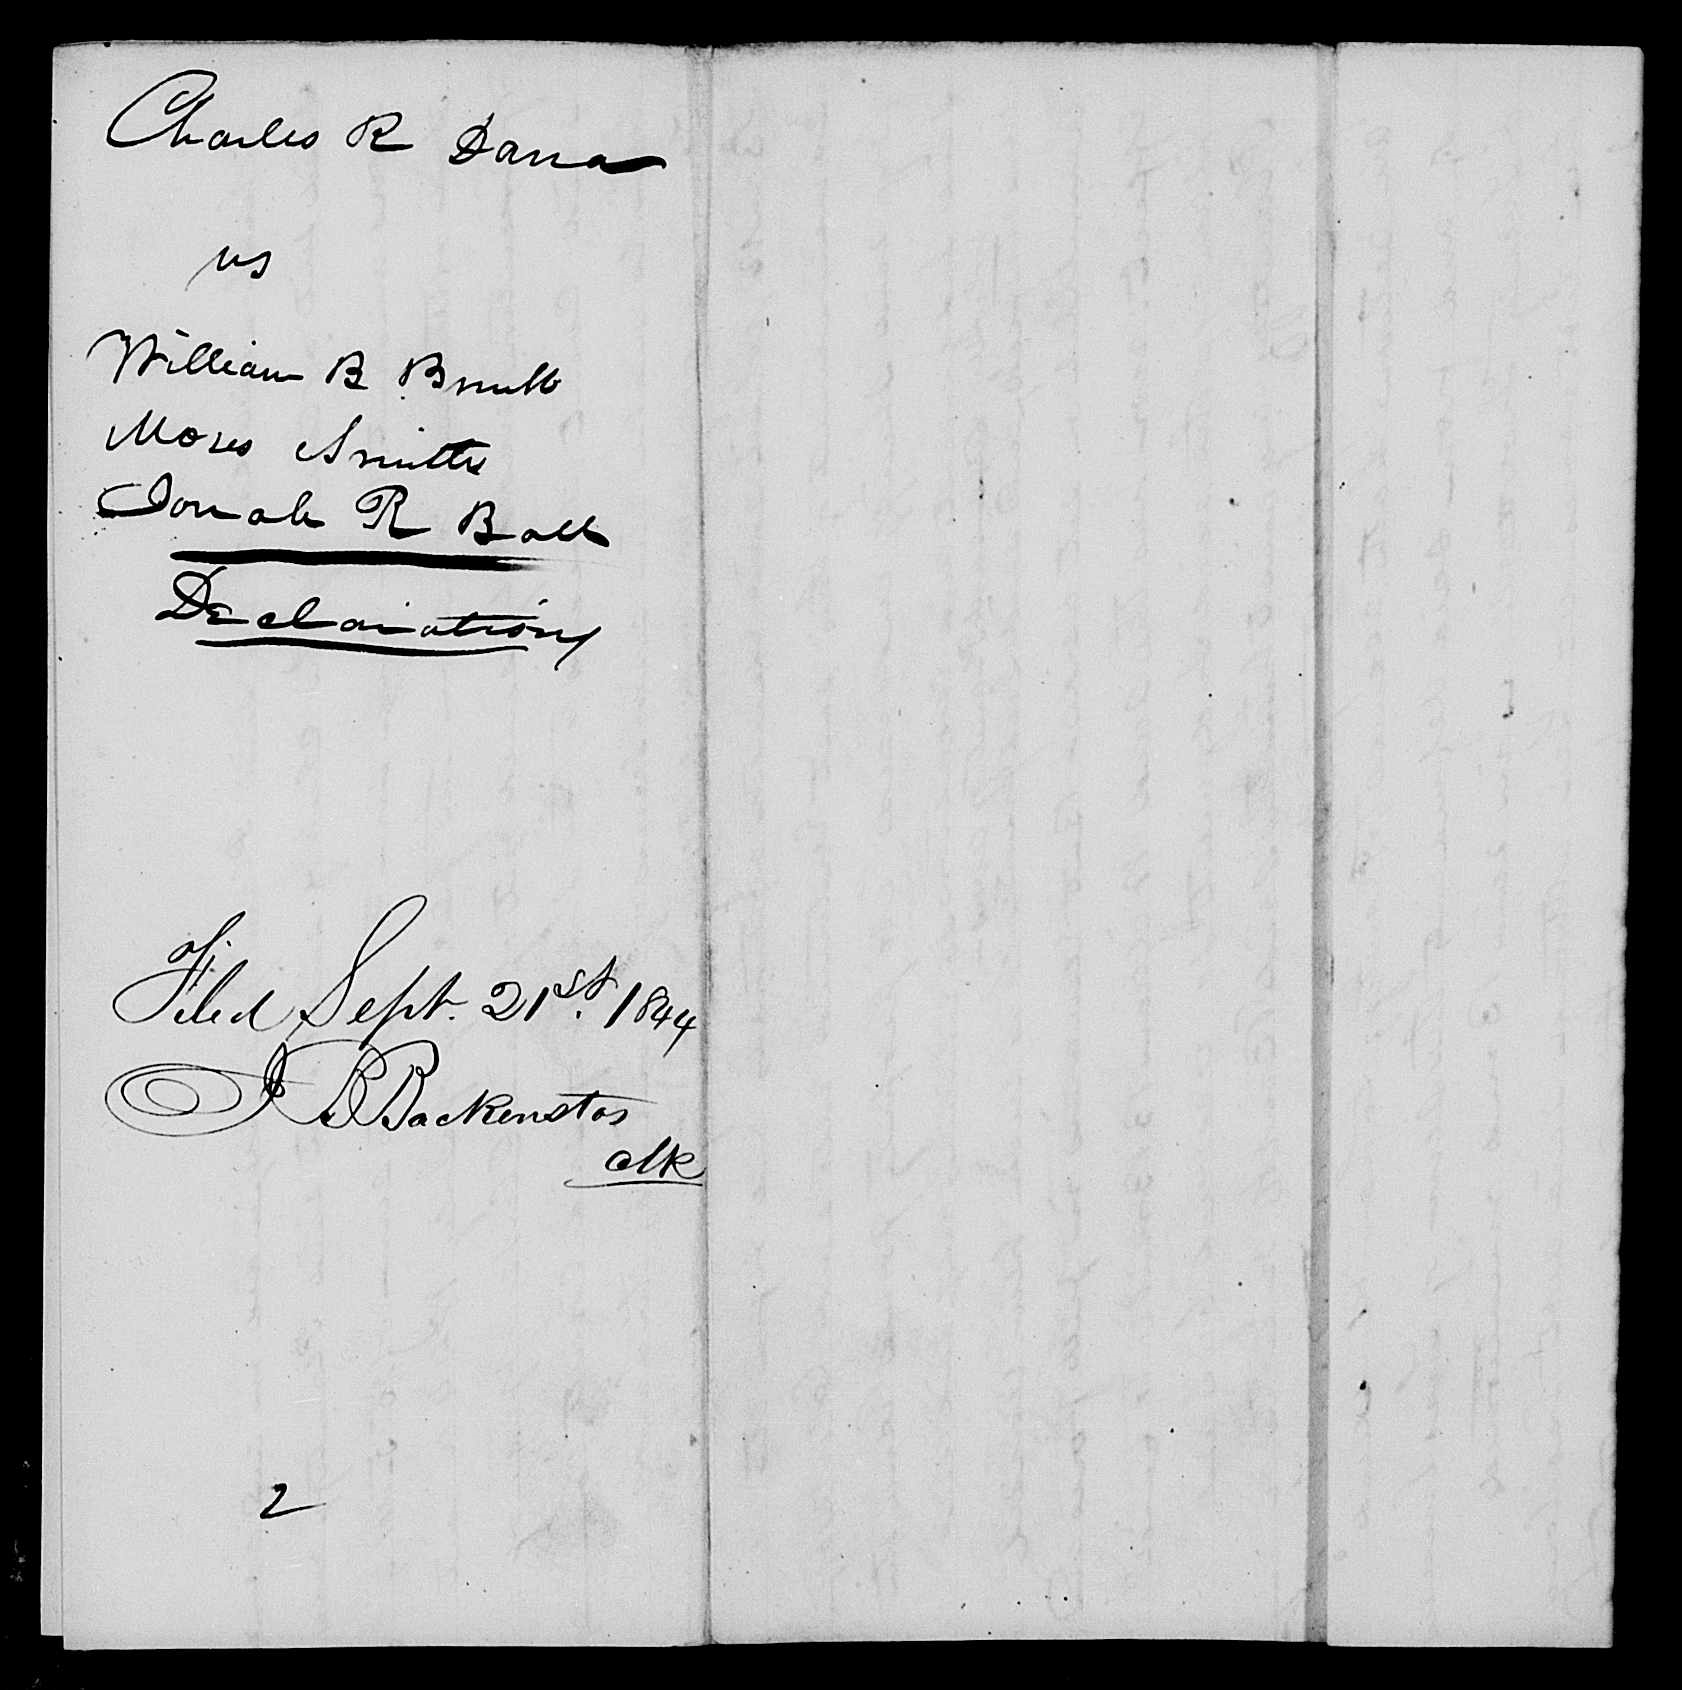 Charles R Dana
vs
William B Brutt
Moses Smith
Jonah R Ball
Declaration
Filed Sept. 21st. 1844
J B Backenstos
clk
2